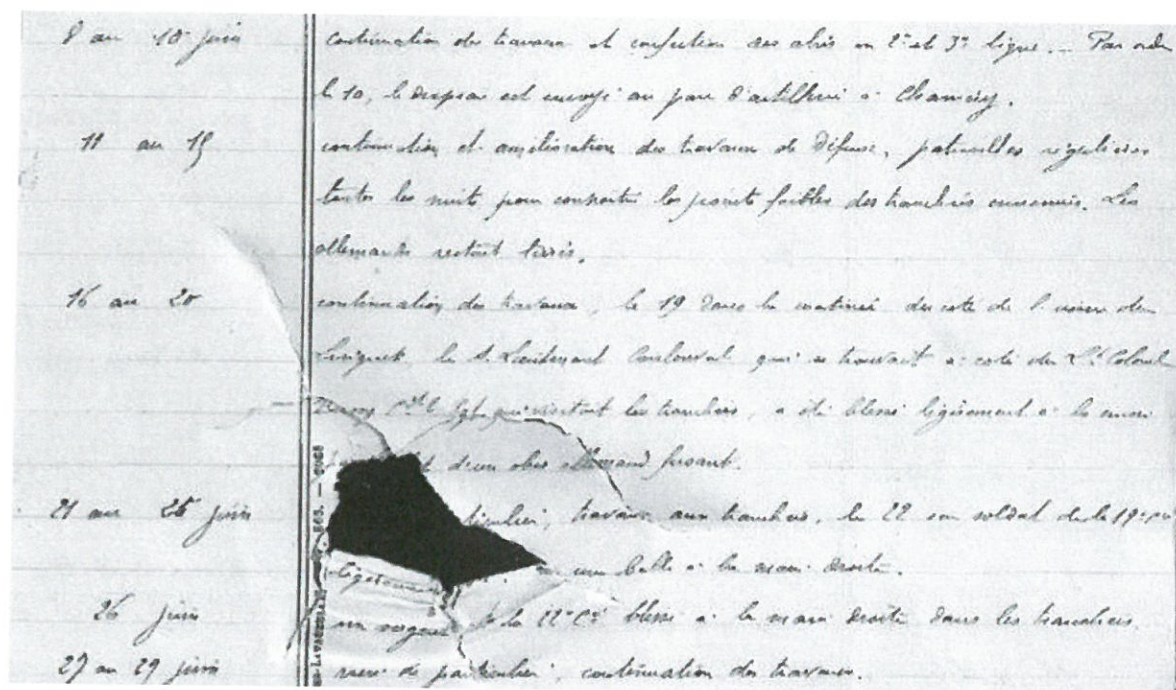 8 au 10 juin continuation des travaux et confection des abris en 2e et 3e ligne. — Par ordre
le 10, le drapeau est envoyé au parc d'artillerie à
11 au 15 continuation et amélioration des travaux de défense, patrouilles régulières
toutes les nuits pour connaître les points faibles des tranchées ennemies. Les
allemands restent
16 au 20 continuation des travaux, le 19 dans la matinée du coté de l'usine de
le S. Lieutenant qui se trouvait à coté du Lt Colonel
qui visitait les tranchées, a été blessé légèrement à la main
d'un obus allemand fusant.
21 au 25 juin travaux aux tranchées, le 22 un soldat de la 19e Cie
légèrement une balle à la main droite.
26 juin un de la 22e Cie blessé à la main droite dans les tranchées.
27 au 29 juin rien de particulier, continuation des travaux.